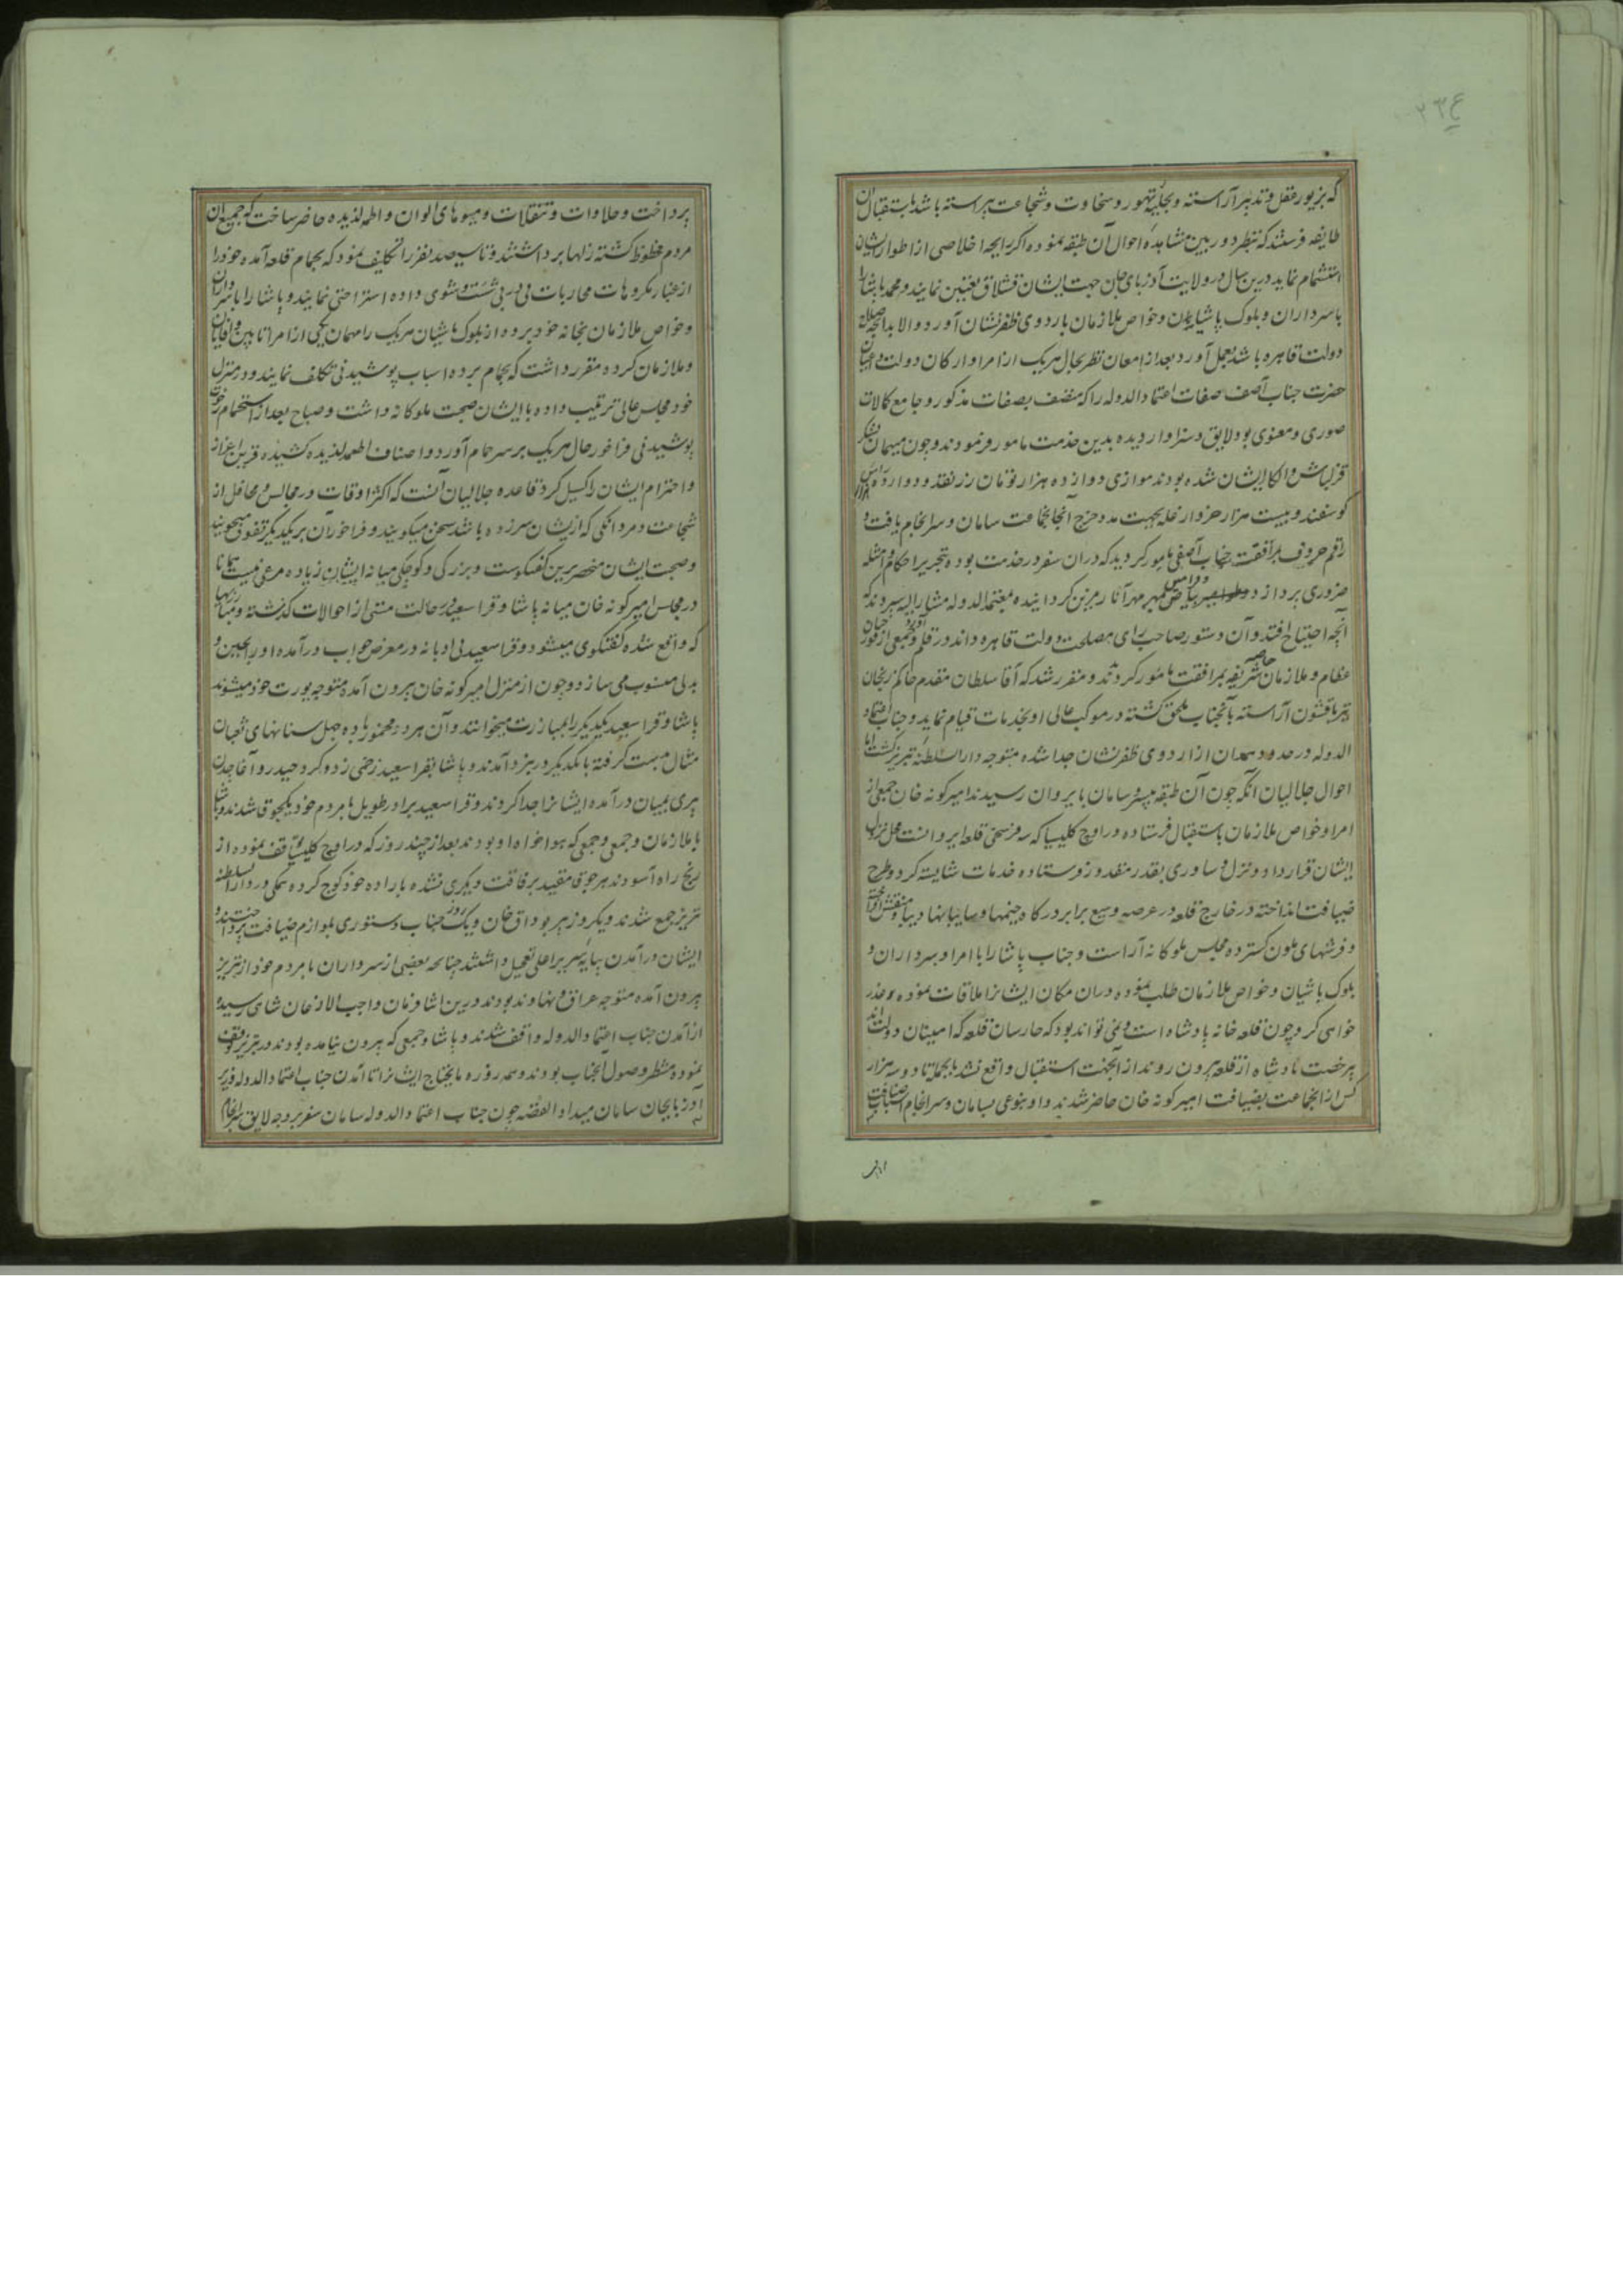 ۲۳۴
که بزیور عقل و تدبیر آراسته و بحلیه تهور و سخاوت و شجاعت پیراسته باشد باستقبال آن
طایفه فرستند که بنظر دوربین مشاهده احوال آن طبقه نموده اگر رایحه اخلاصی از اطوار ایشان
استشمام نماید درین سال در ولایت آذربایجان جهت ایشان قشلاق تعیین نمایند و محمد پاشا را
با سرداران و بلوک باشیان و خواص ملازمان باردوی ظفرنشان آورد و الا بدانچه صلاح
دولت قاهره باشد بعمل آورد بعد از امعان نظر بحال هریک از امرا و ارکان دولت و اعیان
حضرت جناب آصف صفات اعتمادالدوله را که متصف بصفات مذکور و جامع کمالات
صوری و معنوی بود لایق و سزاوار دیده بدین خدمت مامور فرمودند و چون میهمان لشکر
قزلباش و الکا ایشان شده بودند موازی دوازده هزار تومان زر نقد و دوازده هزار راس
گوسفند و بیست هزار خروار غله بجهت مدد خرج آنجماعت سامان و سرانجام یافت و
راقم حروف بمرافقت جناب آصفی مامور گردید که دران سفر در خدمت بوده بتحریر احکام و امثله
ضروری پردازد و بیاض بمهر مهر آثار مزین گردانیده بمعتمدالدوله مشارالیه سپردند که
آنچه احتیاج افتد و آن دستور صاحب رای مصلحت دولت قاهره داند در قلم آورد و جمعی از قورچیان
عظام و ملازمان خاصه شریفه بمرافقت مامور کردند و مقرر شد که آقا سلطان مقدم حاکم زنجان
نیز با قشون آراسته بآنجناب ملحق گشته در موکب عالی او بخدمات قیام نماید و جناب اعتماد
الدوله در حدود همدان از اردوی ظفرنشان جدا شده متوجه دارالسلطنه تبریز گشت اما
احوال جلالیان آنکه چون آن طبقه بیسر و سامان بایروان رسیدند امیرکونه خان جمعی از
امرا و خواص ملازمان باستقبال فرستاده در اوچ کلیسیا که سه فرسخی قلعه ایروانست محل نزول
ایشان قرار داد و نزل و ساوری بقدر مقدور فرستاده خدمات شایسته کرد و طرح
ضیافت انداخته در خارج قلعه در عرصه وسیع برابر درگاه خیمها و سایبانها دیبا و منقش افراخته
و فرشهای ملون گسترده مجلس ملوکانه آراست و جناب پاشا را با امرا و سرداران و
بلوک باشیان و خواص ملازمان طلب نموده دران مکان ایشانرا ملاقات نموده عذر
خواهی کرد چون قلعه خانه پادشاه است و نمی تواند بود که حارسان قلعه که امینان دولت اند
بیرخصت پادشاه از قلعه بیرون روند از آنجهت استقبال واقع نشد بالجمله تا دو سه هزار
کس از انجماعت بضیافت امیرکونه خان حاضر شدند و او بنوعی بسامان و سرانجام اسباب ضیافت
پرداخت و حلاوات و تنقلات و میوهای الوان و اطعمه لذیذه حاضر ساخت که جمیع آن
مردم محظوظ گشته زلها برداشتند و تا سیصد نفر را تکلیف نمود که بحمام قلعه آمده خود را
از غبار مکروهات محاربات پی در پی شست و شوی داده استراحتی نمایند و پاشا را با سرداران
و خواص ملازمان بخانه خود برده از بلوک باشیان هریک را مهمان یکی از امرا تا بین و آقایان
و ملازمان کرده مقرر داشت که بحمام برده اسباب پوشیدنی تکلف نمایند و در منزل
خود مجلس عالی ترتیب داده با ایشان صحبت ملوکانه داشت و صباح بعد از استحمام رخوت
پوشیدنی فراخور حال هریک بر سر حمام آورد و اصناف اطعمه لذیذه کشیده قرین اعزاز
و احترام ایشان را گسیل کرد قاعده جلالیان آنست که اکثر اوقات در مجالس و محافل از
شجاعت و مردانگی که ازیشان سرزده باشد سخن میگویند و فراخور آن بریکدیگر تفوق میجویند
و صحبت ایشان منحصر برین گفتگوست و بزرگی و کوچکی میانه ایشان زیاده مرعی نیست همانا
در مجلس امیرکونه خان میانه پاشا و قرا سعید در حالت مستی از احوالات گذشته و
که واقع شده گفتگوی میشود و قرا سعید بی ادبانه در معرض جواب درآمده او را بجبن و
بدلی منسوب می سازد و چون از منزل امیرکونه خان بیرون آمده متوجه یورت خود میشوند
پاشا و قرا سعید یکدیگر را بمبارزت میخوانند و آن هر دو مخمور باده جهل سنانهای ثعبان
مثال بدست گرفته با یکدیگر در نبرد آمدند و پاشا بقرا سعید زخمی زد و کرد حیدر و آغاجدن
پیری بمیان درآمده ایشانرا جدا کردند و قرا سعید برادر طویل با مردم خود یکجوق شدند و پاشا
با ملازمان و جمعی که هواخواه او بودند بعد از چند روز که در اوچ کلیسیا توقف نموده از
رنج راه آسودند هر جوق مقید برفاقت دیگری نشده باراده خود کوچ کرده همگی در دارالسلطنه
تبریز جمع شدند و یکروز پیر بوداق خان و یکروز جناب دستوری بلوازم ضیافت پرداختند و
ایشان در آمدن بپایه سریر اعلی تعجیل داشتند چنانچه بعضی از سرداران با مردم خود از تبریز
بیرون آمده متوجه عراق و نهاوند بودند درین اثنا فرمان واجب الاذعان شاهی رسید و
از آمدن جناب اعتمادالدوله واقف شدند و پاشا و جمعی که بیرون نیامده بودند در تبریز توقف
نموده منتظر وصول آنجناب بودند و همه روزه مایحتاج ایشانرا تا آمدن جناب اعتمادالدوله وزیر
آذربایجان سامان میداد القصه چون جناب اعتمادالدوله سامان سفر بر وجه لایق سرانجام